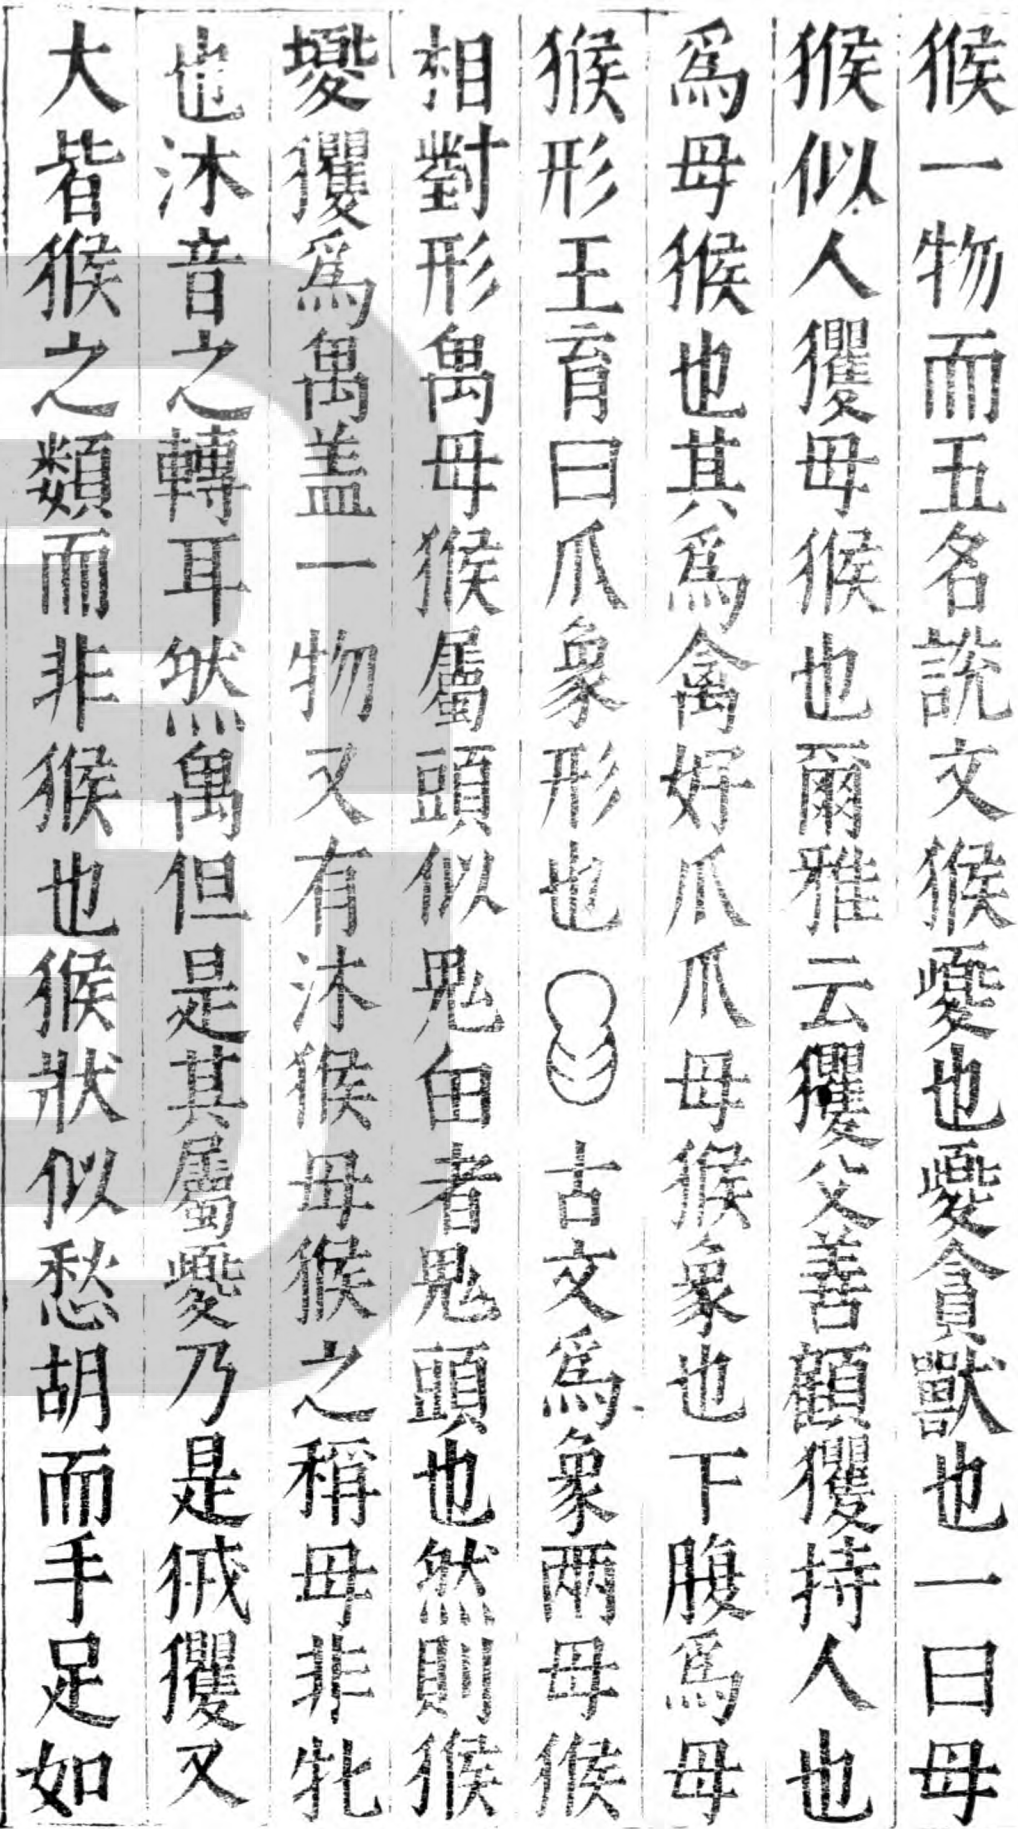 猴一物而五名説文猴夒也夒貪獸也一曰母
猴似人玃母猴也爾雅云玃父善顧玃持人也
爲母猴也其爲禽好爪爪母猴象也下腹爲母
猴形王育曰爪象形也古文爲象兩母猴
相對形禺母猴屬頭似鬼甶者鬼頭也然則猴
夒玃爲禺盖一物又有沐猴母猴之稱母非牝
也沐音之轉耳然禺但是其屬夒乃是狨玃又
大皆猴之類而非猴也猴狀似愁胡而手足如